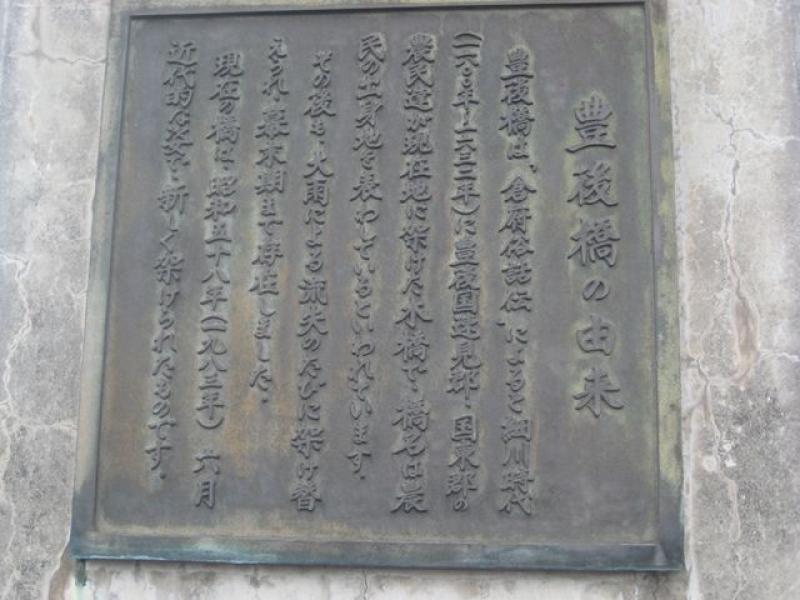 豊後橋の由来
豊後橋は、「倉府俗話伝」によると細川時代
(一六〇〇年〜一六三二年)に豊後国速見郡・国東郡の
農民達が現在地に架けた木橋で、橋名は農
民の出身地を表わしているといわれています。
その後も、大雨による流失のたびに架け替
えられ、幕末期まで存在しました。
現在の橋は、昭和五十八年(一九八三年)六月
近代的な姿で、新しく架けられたものです。